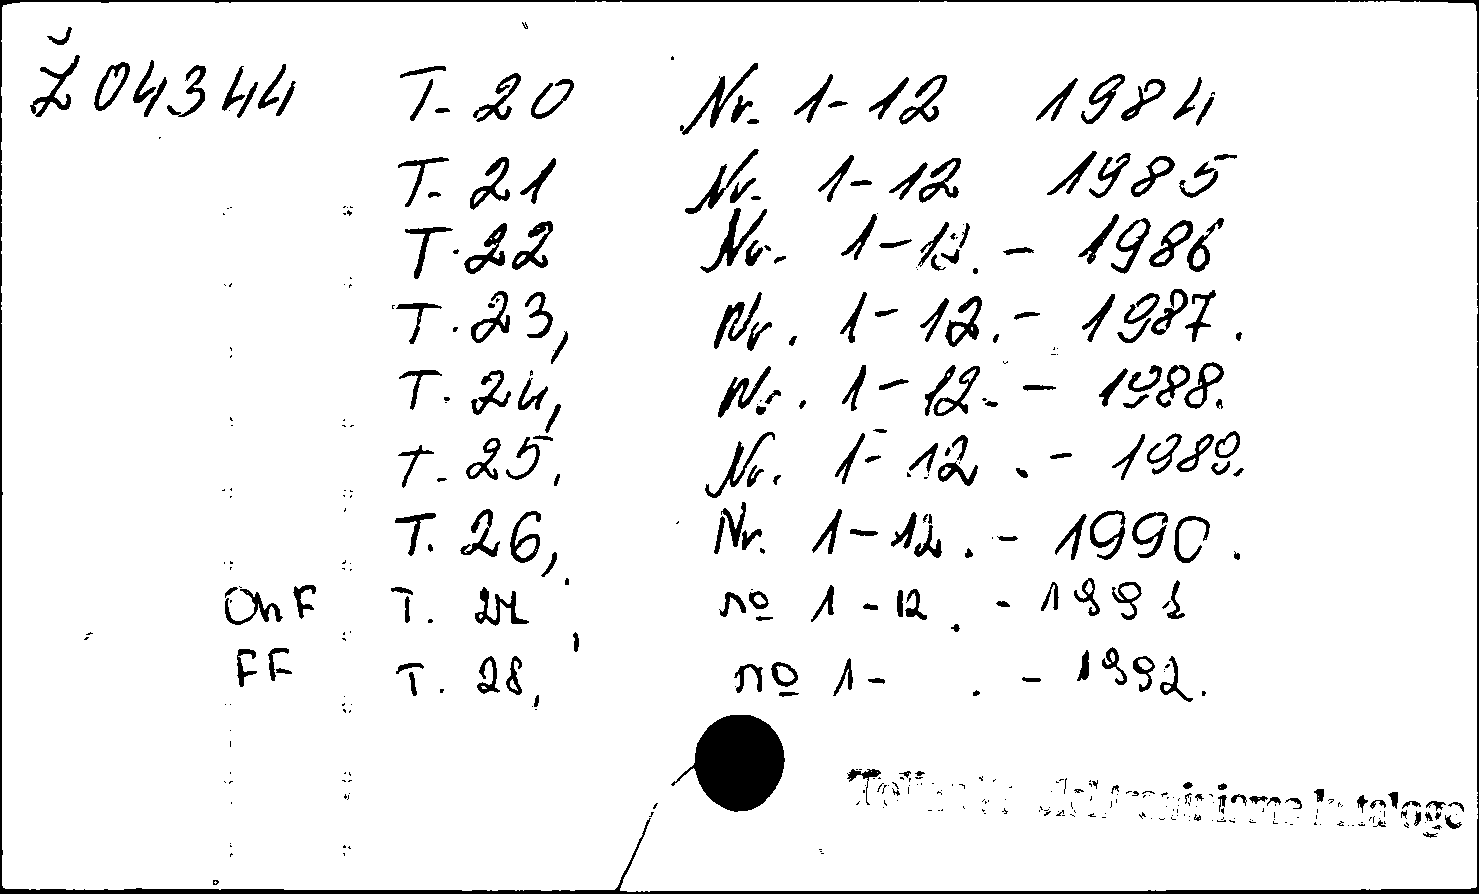 Ž04344 T. 20 Nr. 1-12 1984
T. 21 Nr. 1-12 1985
T. 22 Nr. 1-12. - 1986
T. 23, Nr. 1-12. - 1987.
T. 24, Nr. 1-12. - 1988.
T. 25, Nr. 1-12. - 1989.
T. 26, Nr. 1-12. - 1990.
OhF T. 27, nº 1-12. - 1991
FF T. 28, nº 1- . - 1992.
kataloge